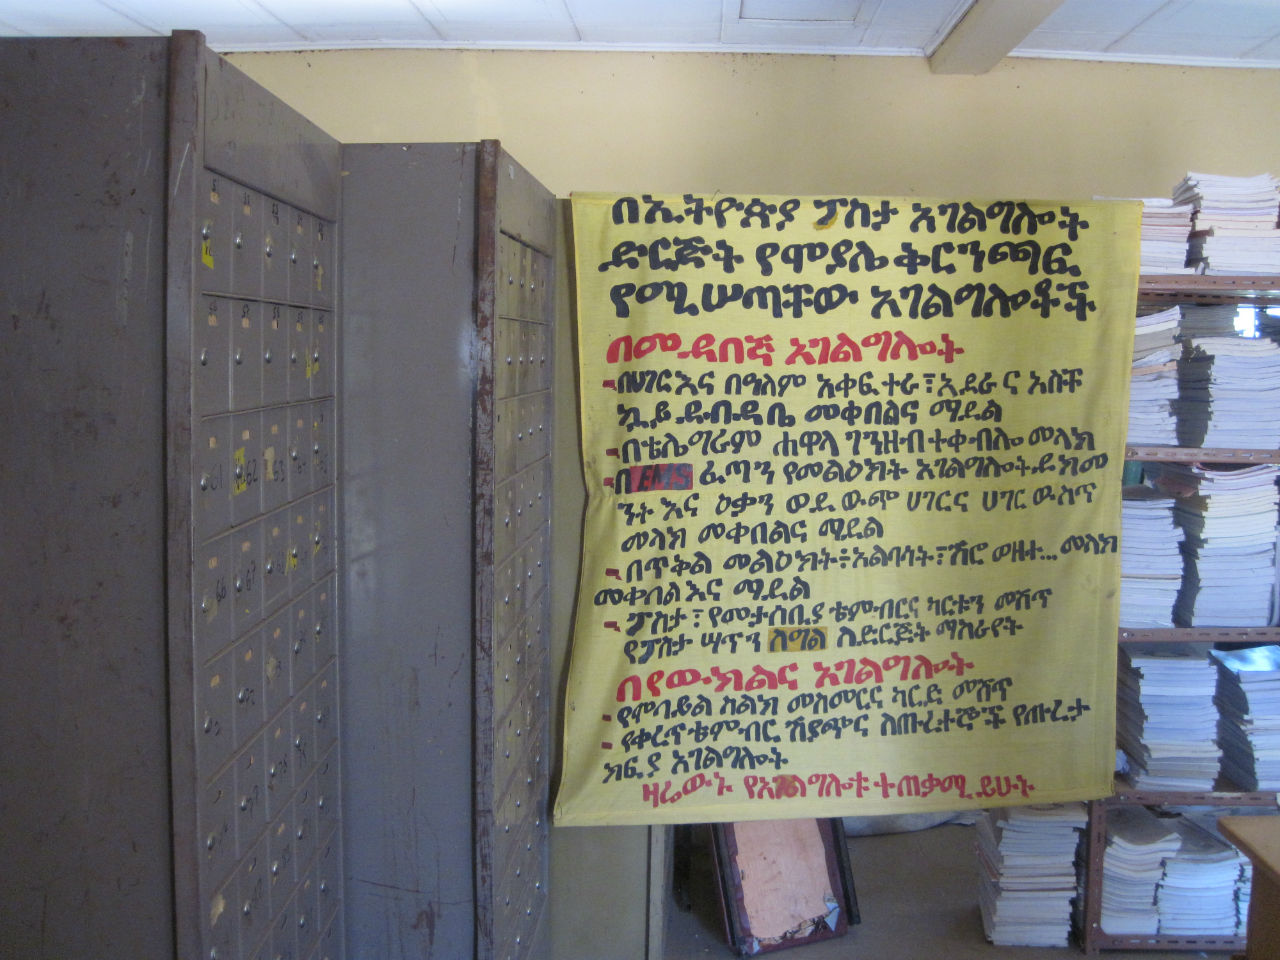 በኢትዮጵያ ፖስታ አገልግሎት
ድርጅት የሞያሌ ቅርንጫፍ
የሚሠጣቸው አገልግሎቶች
በመደበኛ አገልግሎት
-በሀገር እና በዓለም አቀፍ ተራ፣ አደራ ና አስቸ
ኳይ ደብዳቤ መቀበልና ማደል
-በቴሌግራም ሐዋላ ገንዘብ ተቀብሎ መላክ
-በ EMS ፈጣን የመልዕክት አገልግሎት ዶክመ
ንት እና ዕቃን ወደ ውጭ ሀገርና ሀገር ውስጥ
መላክ መቀበልና ማደል
-በጥቅል መልዕክት፥አልባሳት፣ሽሮ ወዘተ... መላክ
መቀበል እና ማደል
-ፖስታ፣ የመታሰቢያ ቴምብርና ካርዱን መሸጥ
የፖስታ ሣጥን ለግል ለድርጅት ማከራየት
በየውክልና አገልግሎት
-የሞባይል ስልክ መስመርና ካርድ መሸጥ
-የቀረጥ ቴምብር ሽያጭና ለጡረተኞች የጡረታ
ክፍያ አገልግሎት
ዛሬውኑ የአገልግሎቱ ተጠቃሚ ይሁኑ
61
62
63
66
67